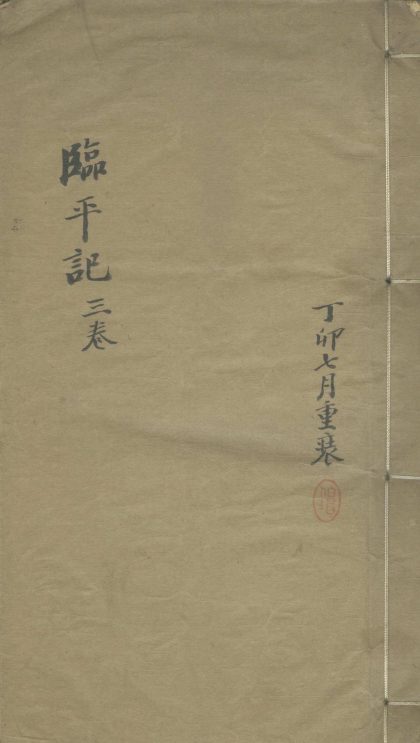 丁卯七月重裝
臨平記三卷